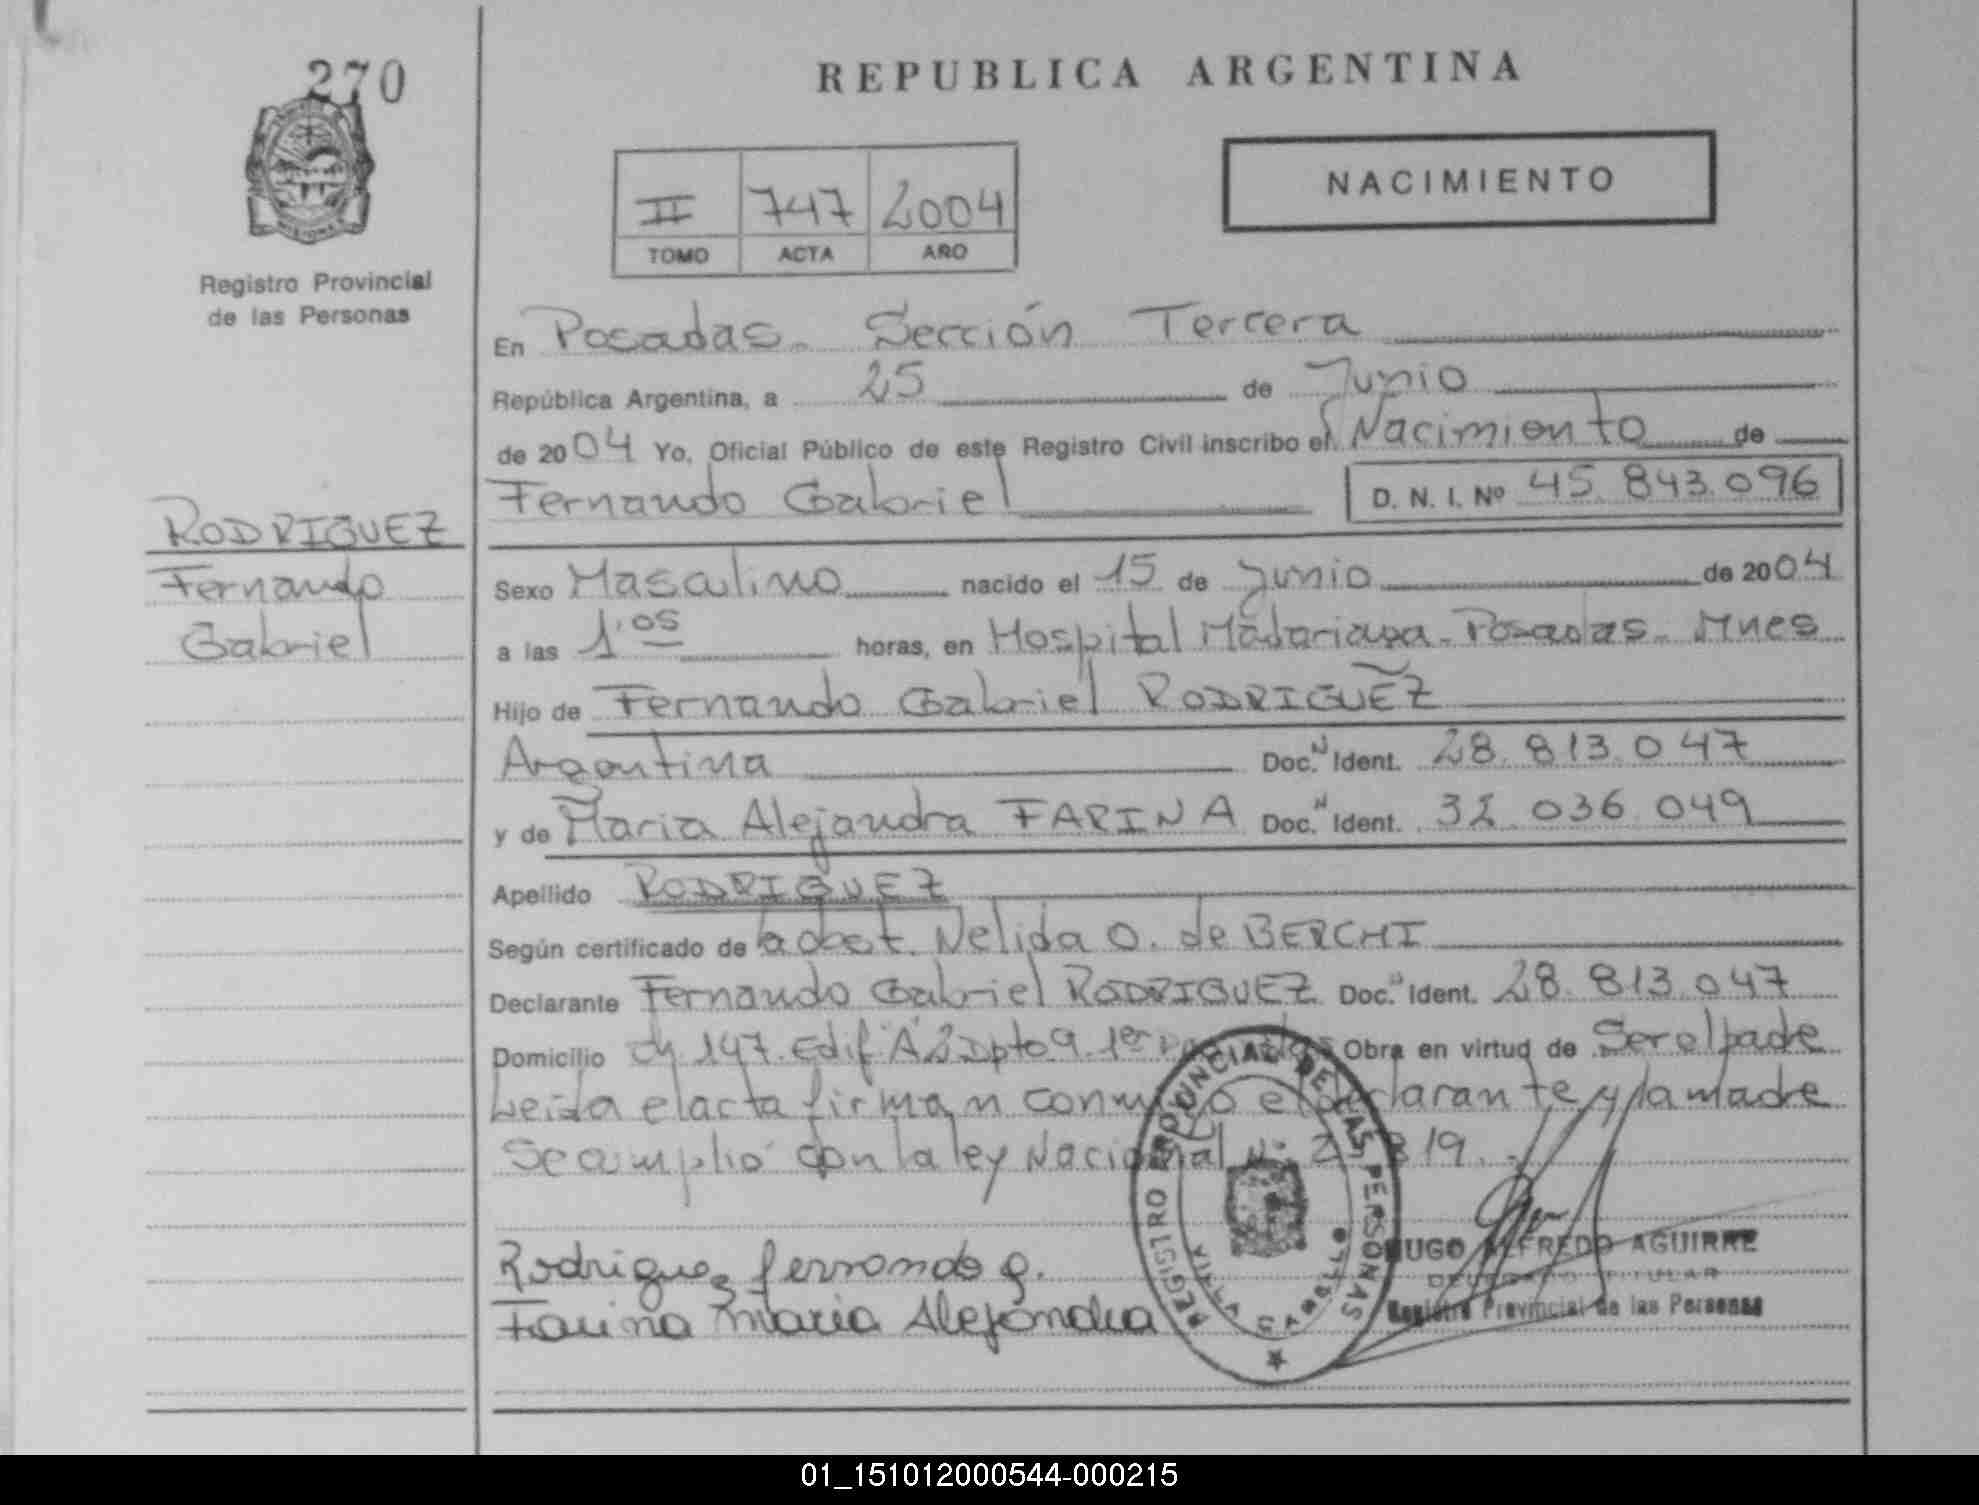 270
REPUBLICA ARGENTINA
NACIMIENTO
II 747 2004
TOMO ACTA AÑO
MISIONES
Registro Provincial
de las Personas
En Posadas. Sección Tercera
República Argentina, a 25 de Junio
de 2004 Yo, Oficial Público de este Registro Civil inscribo el Nacimiento de
Fernando Gabriel D. N. I. Nº 45.843.096
RODRIGUEZ
Fernando
Gabriel
Sexo Masculino nacido el 15 de Junio de 2004
a las 1.05 horas, en Hospital Madariaga - Posadas - Mnes
Hijo de Fernando Gabriel RODRIGUEZ
Argentina Doc. N Ident. 28.813.047
y de Maria Alejandra FARINA Doc. N Ident. 32.036.049
Apellido RODRIGUEZ
Según certificado de la obst. Nelida O. de BERCHI
Declarante Fernando Gabriel RODRIGUEZ Doc. N Ident. 28.813.047
Domicilio Ch 147. Edif. A 2 Dpto 9. 1er Obra en virtud de Ser el padre
Leida el acta firman conmigo el declarante y la madre
Se cumplio con la ley Nacional
Rodriguez Fernando G.
Farina Maria Alejandra
REGISTRO PROVINCIAL DE LAS PERSONAS
VILLA CABELLO
HUGO ALFREDO AGUIRRE
DELEGADO TITULAR
Registro Provincial de las Personas
01_151012000544-000215